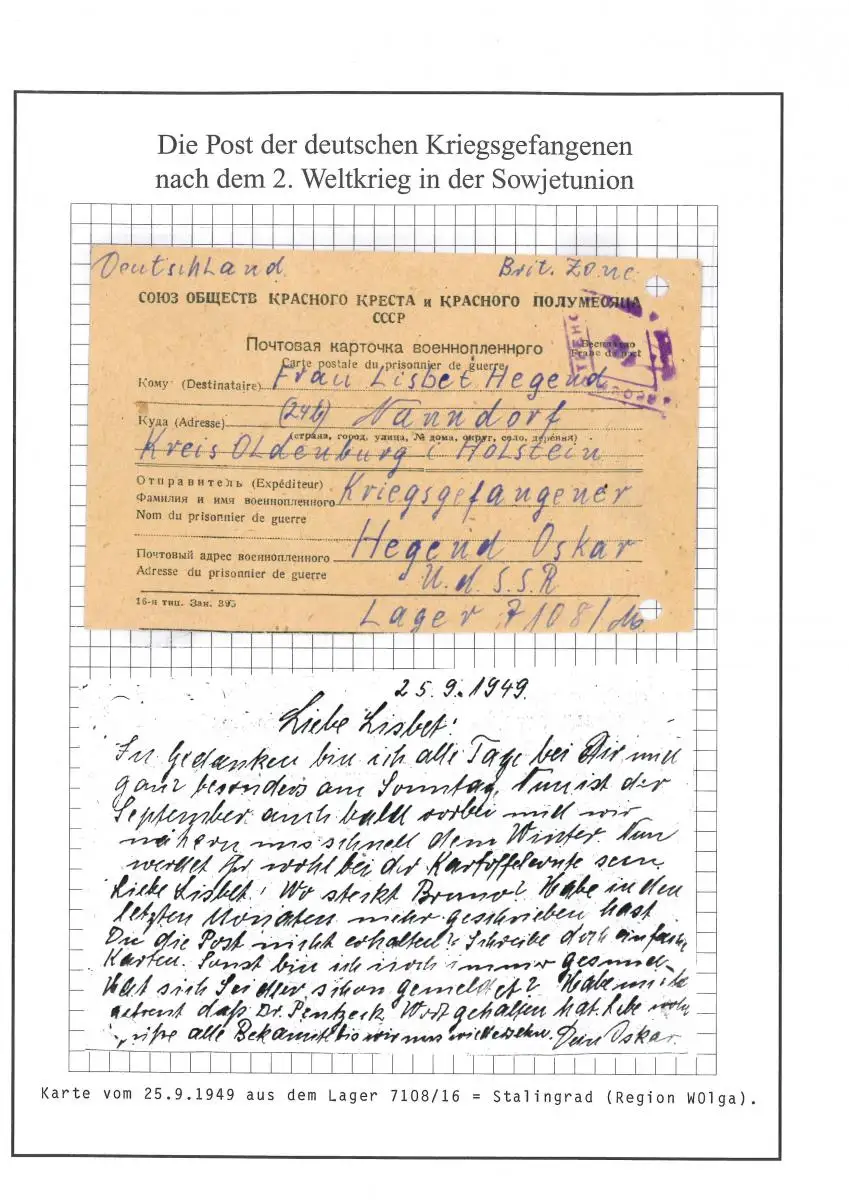 Die Post der deutschen Kriegsgefangenen
nach dem 2. Weltkrieg in der Sowjetunion
Deutschland Brit. Zone
СОЮЗ ОБЩЕСТВ КРАСНОГО КРЕСТА и КРАСНОГО ПОЛУМЕСЯЦА
СССР
Почтовая карточка военнопленного
Бесплатно
Carte postale du prisonnier de guerre
Franc de port
Кому (Destinataire) Frau Lisbet Hegend
Куда (Adresse) (24b) Nanndorf
(страна, город, улица, № дома, округ, село, деревня)
Kreis Oldenburg i Holstein
Отправитель (Expéditeur) Kriegsgefangener
Фамилия и имя военнопленного
Nom du prisonnier de guerre
Hegend Oskar
Почтовый адрес военнопленного
Adresse du prisonnier de guerre U.d.S.S.R
16-я тип. Зак. 395 Lager 7108/16
25.9.1949.
Liebe Lisbet!
In Gedanken bin ich alle Tage bei Dir und
ganz besonders am Sonntag. Nun ist der
September auch bald vorbei und wir
nähern uns schnell dem Winter. Nun
werdet Ihr wohl bei der Kartoffelernte sein.
Liebe Lisbet! Wo steckt Bruno? Habe in den
letzten Monaten mehr geschrieben hast
Du die Post nicht erhalten? Schreibe doch einfache
Karten. Sonst bin ich noch immer gesund
Hat sich Seidler schon gemeldet? Habe mich
gefreut daß Dr. Pentzeck Wort gehalten hat. Lebe wohl
alle Bekannte bis wir uns wiedersehn. Dein Oskar.
Karte vom 25.9.1949 aus dem Lager 7108/16 = Stalingrad (Region WOlga).